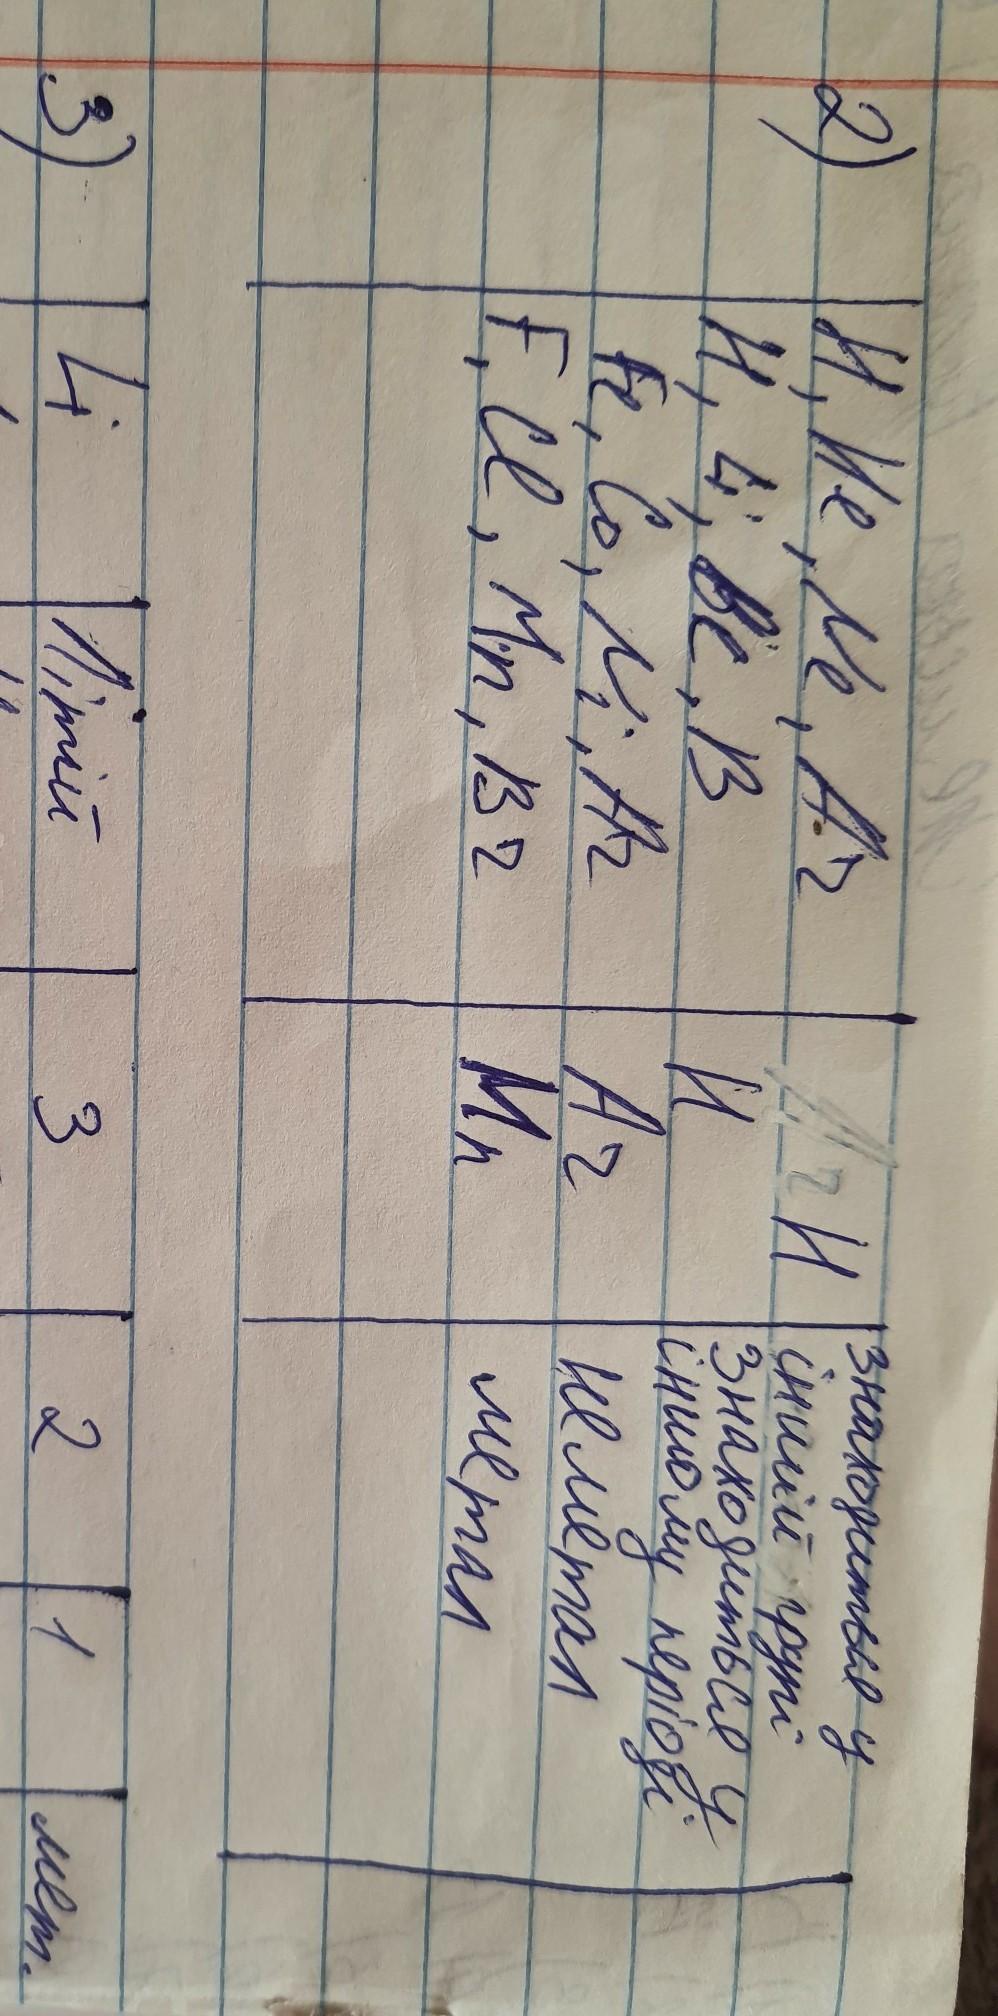 2) H, He, Ne, Ar H знаходиться у
іншій групі
H, Li, Be, B H знаходиться у
іншому періоді
Fe, Co, Ni, Ar Ar неметал
F, Cl, Mn, Br Mn метал
3) Li Літій 3 2 1 мет.